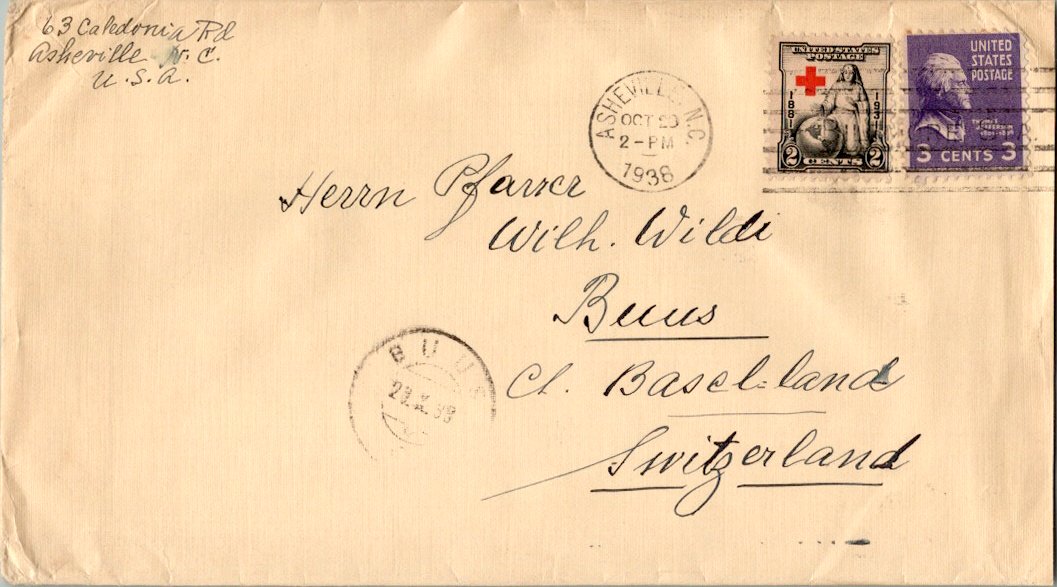 63 Caledonia Rd
Asheville N. C.
U. S. A.
ASHEVILLE, N.C.
OCT
2-PM
1938
UNITED STATES
POSTAGE
1881
1931
2 CENTS 2
UNITED
STATES
POSTAGE
THOMAS
JEFFERSON
3 CENTS 3
Herrn Pfarrer
Wilh. Wildi
Buus
Ct. Basel-land
Switzerland
BUUS